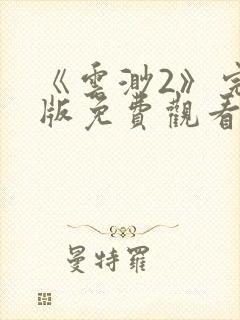 《雲渺2》完
版免費觀看
曼特羅